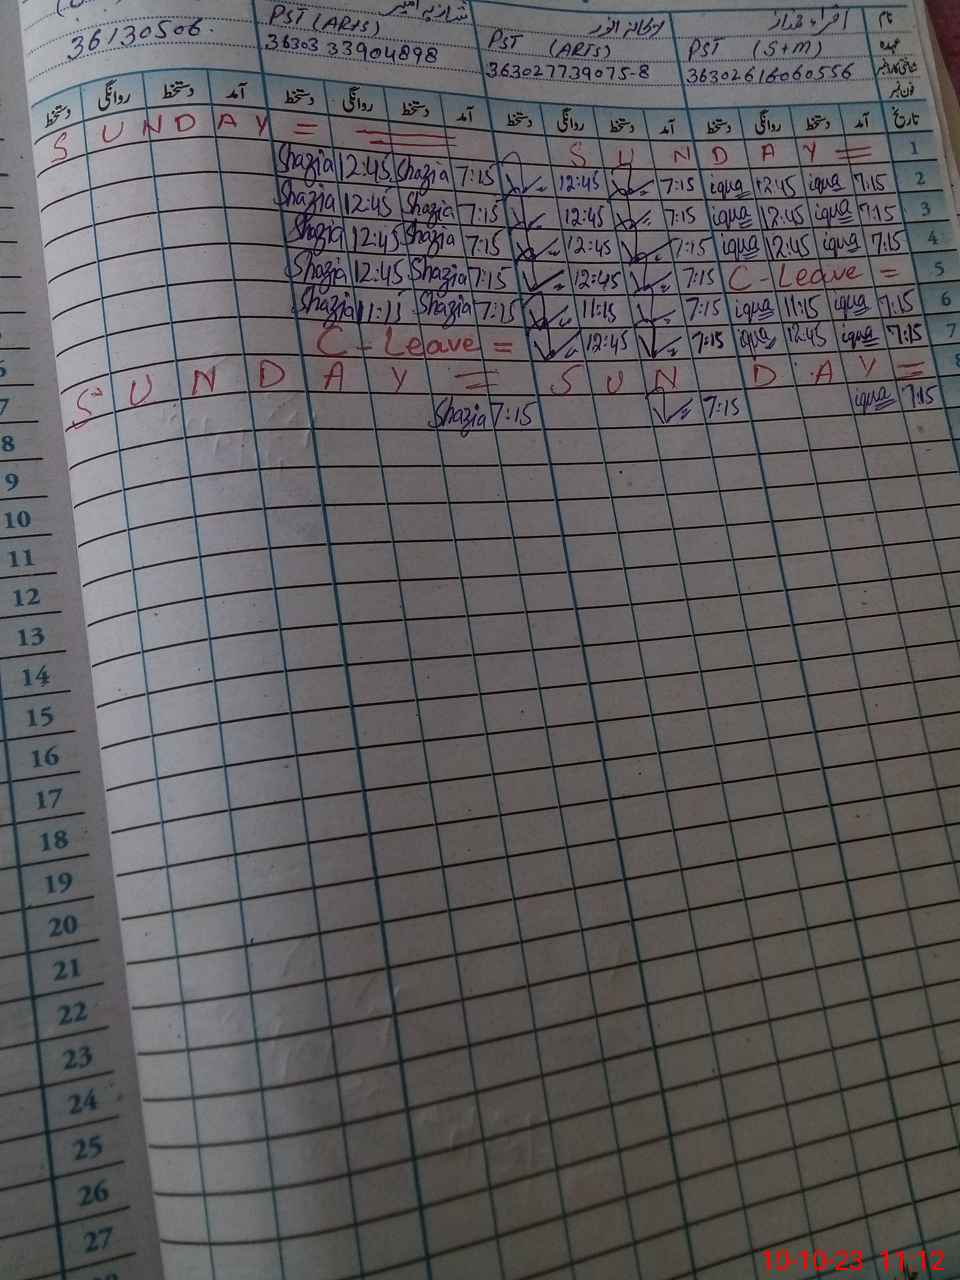 36130506.
PST (ARTS)
36303 33904898
PST (ARTS)
363027739075-8
PST (S+M)
36302616060556
نام
عہدہ
دستخط روانگی دستخط آمد دستخط روانگی دستخط آمد دستخط روانگی دستخط آمد دستخط روانگی دستخط آمد تاریخ
S U N D A Y = S U N D A Y = 1
Shazia 12:45 Shazia 7:15 12:45 7:15 iqua 12:45 iqua 7:15 2
Shazia 12:45 Shazia 7:15 12:45 7:15 iqua 12:45 iqua 7:15 3
Shazia 12:45 Shazia 7:15 12:45 7:15 iqua 12:45 iqua 7:15 4
Shazia 12:45 Shazia 7:15 12:45 7:15 C-Leave = 5
Shazia 11:15 Shazia 7:15 11:15 7:15 iqua 11:15 iqua 7:15 6
C-Leave = 12:45 7:15 iqua 12:45 iqua 7:15 7
S U N D A Y = S U N D A Y = 8
Shazia 7:15 7:15 iqua 7:15
7
8
9
10
11
12
13
14
15
16
17
18
19
20
21
22
23
24
25
26
27
10-10-23 11:12